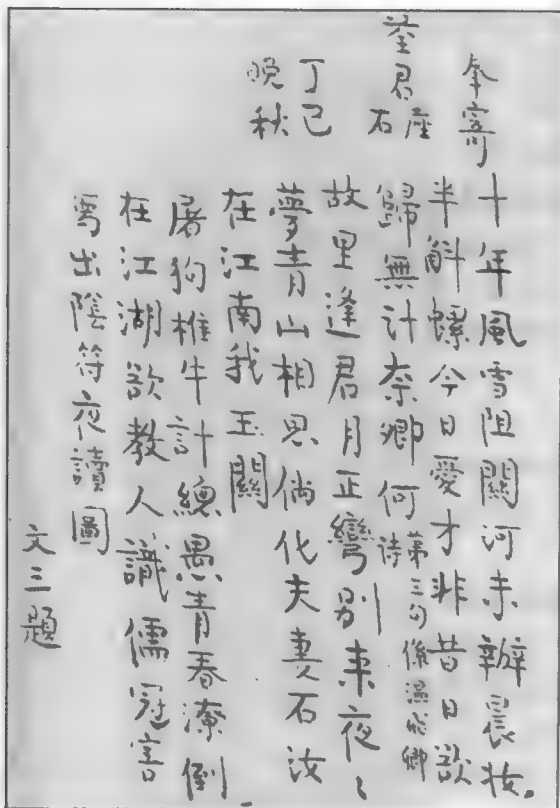 奉寄
荃君產石
丁巳
晚秋
十年風雪阻關河未辦晨妝。
半斛螺今日愛才非昔日欲
歸無計奈卿何 第三句係溫飛卿詩
故里逢君月正彎別來夜〻
夢青山相思倘化夫妻石汝
在江南我玉關
屠狗椎牛計總愚青春潦倒
在江湖欲教人識儒冠害
寫出陰符夜讀圖
文三題